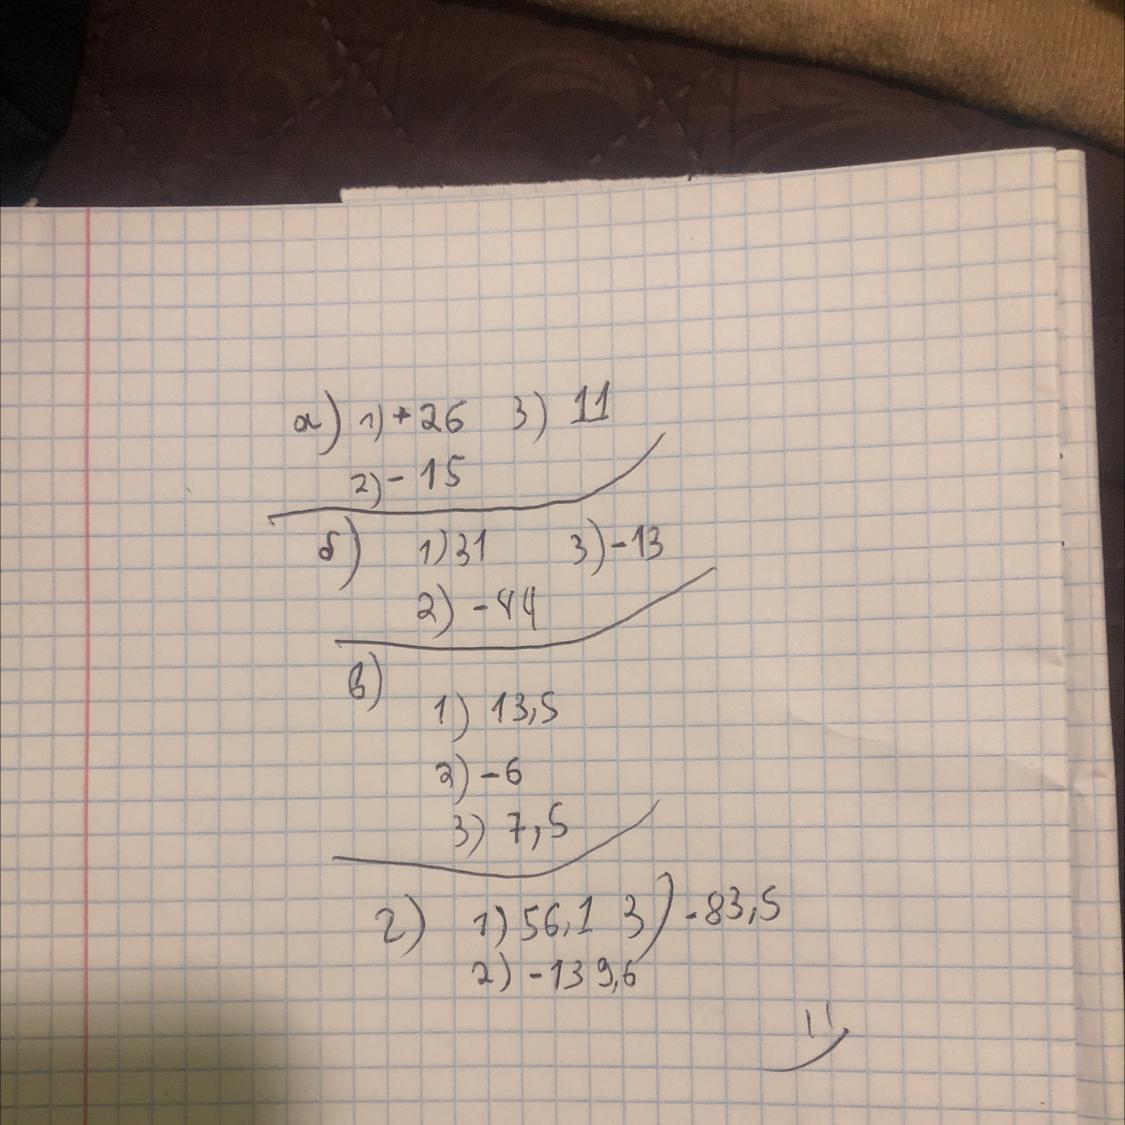 а) 1) +26 3) 11
2) - 15
б) 1) 31 3) -13
2) -44
в)
1) 13,5
2) -6
3) 7,5
г) 1) 56,1 3) -83,5
2) -139,6